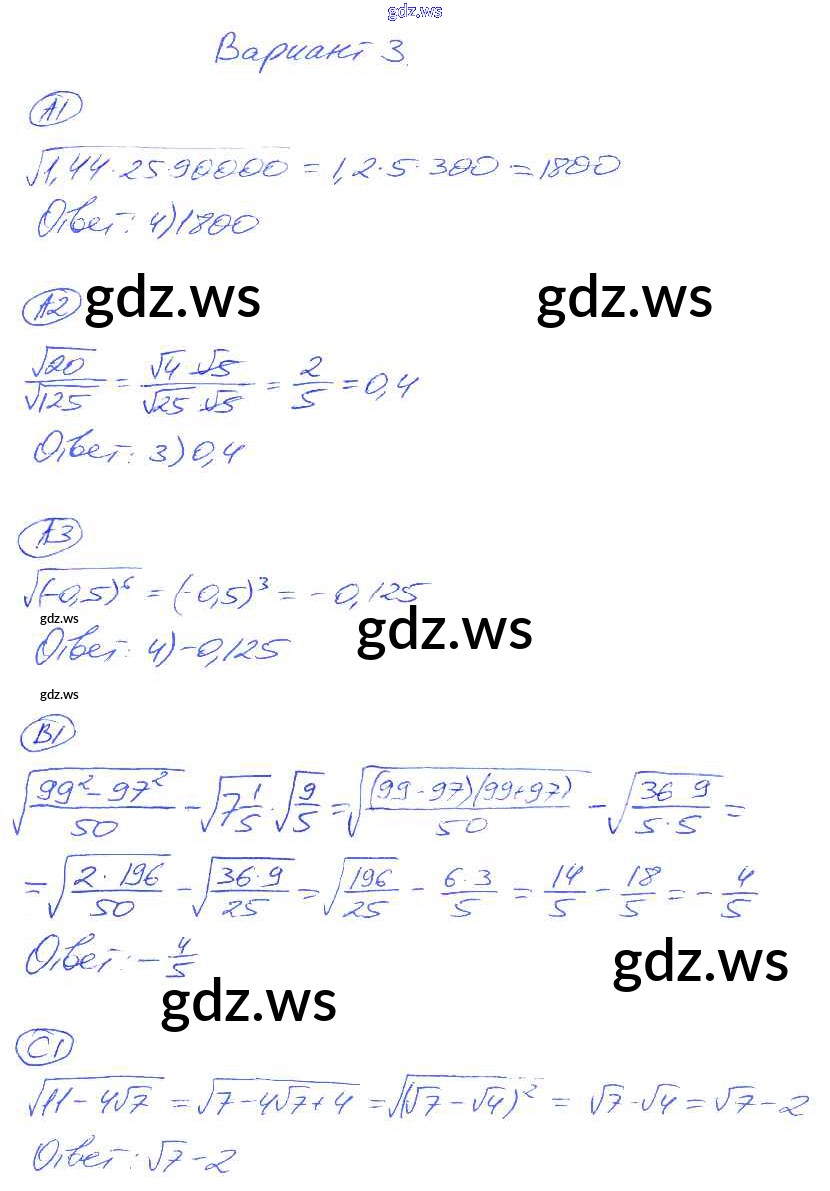 gdz.ws
Вариант 3.
А1
√(1,44·25·90000) = 1,2·5·300 = 1800
Ответ: 4) 1800
А2
gdz.ws gdz.ws
√20/√125 = (√4·√5)/(√25·√5) = 2/5 = 0,4
Ответ: 3) 0,4
А3
√((-0,5)⁶) = (-0,5)³ = -0,125
gdz.ws
Ответ: 4) -0,125
gdz.ws
gdz.ws
В1
√((99² - 97²)/50) - √(7 1/5)·√(9/5) = √((99-97)(99+97)/50) - √((36 9)/(5·5)) =
= √((2·196)/50) - √((36·9)/25) = √(196/25) - (6·3)/5 = 14/5 - 18/5 = -4/5
Ответ: -4/5
gdz.ws
gdz.ws
С1
√(11-4√7) = √(7-4√7+4) = √((√7-√4)²) = √7-√4 = √7-2
Ответ: √7-2